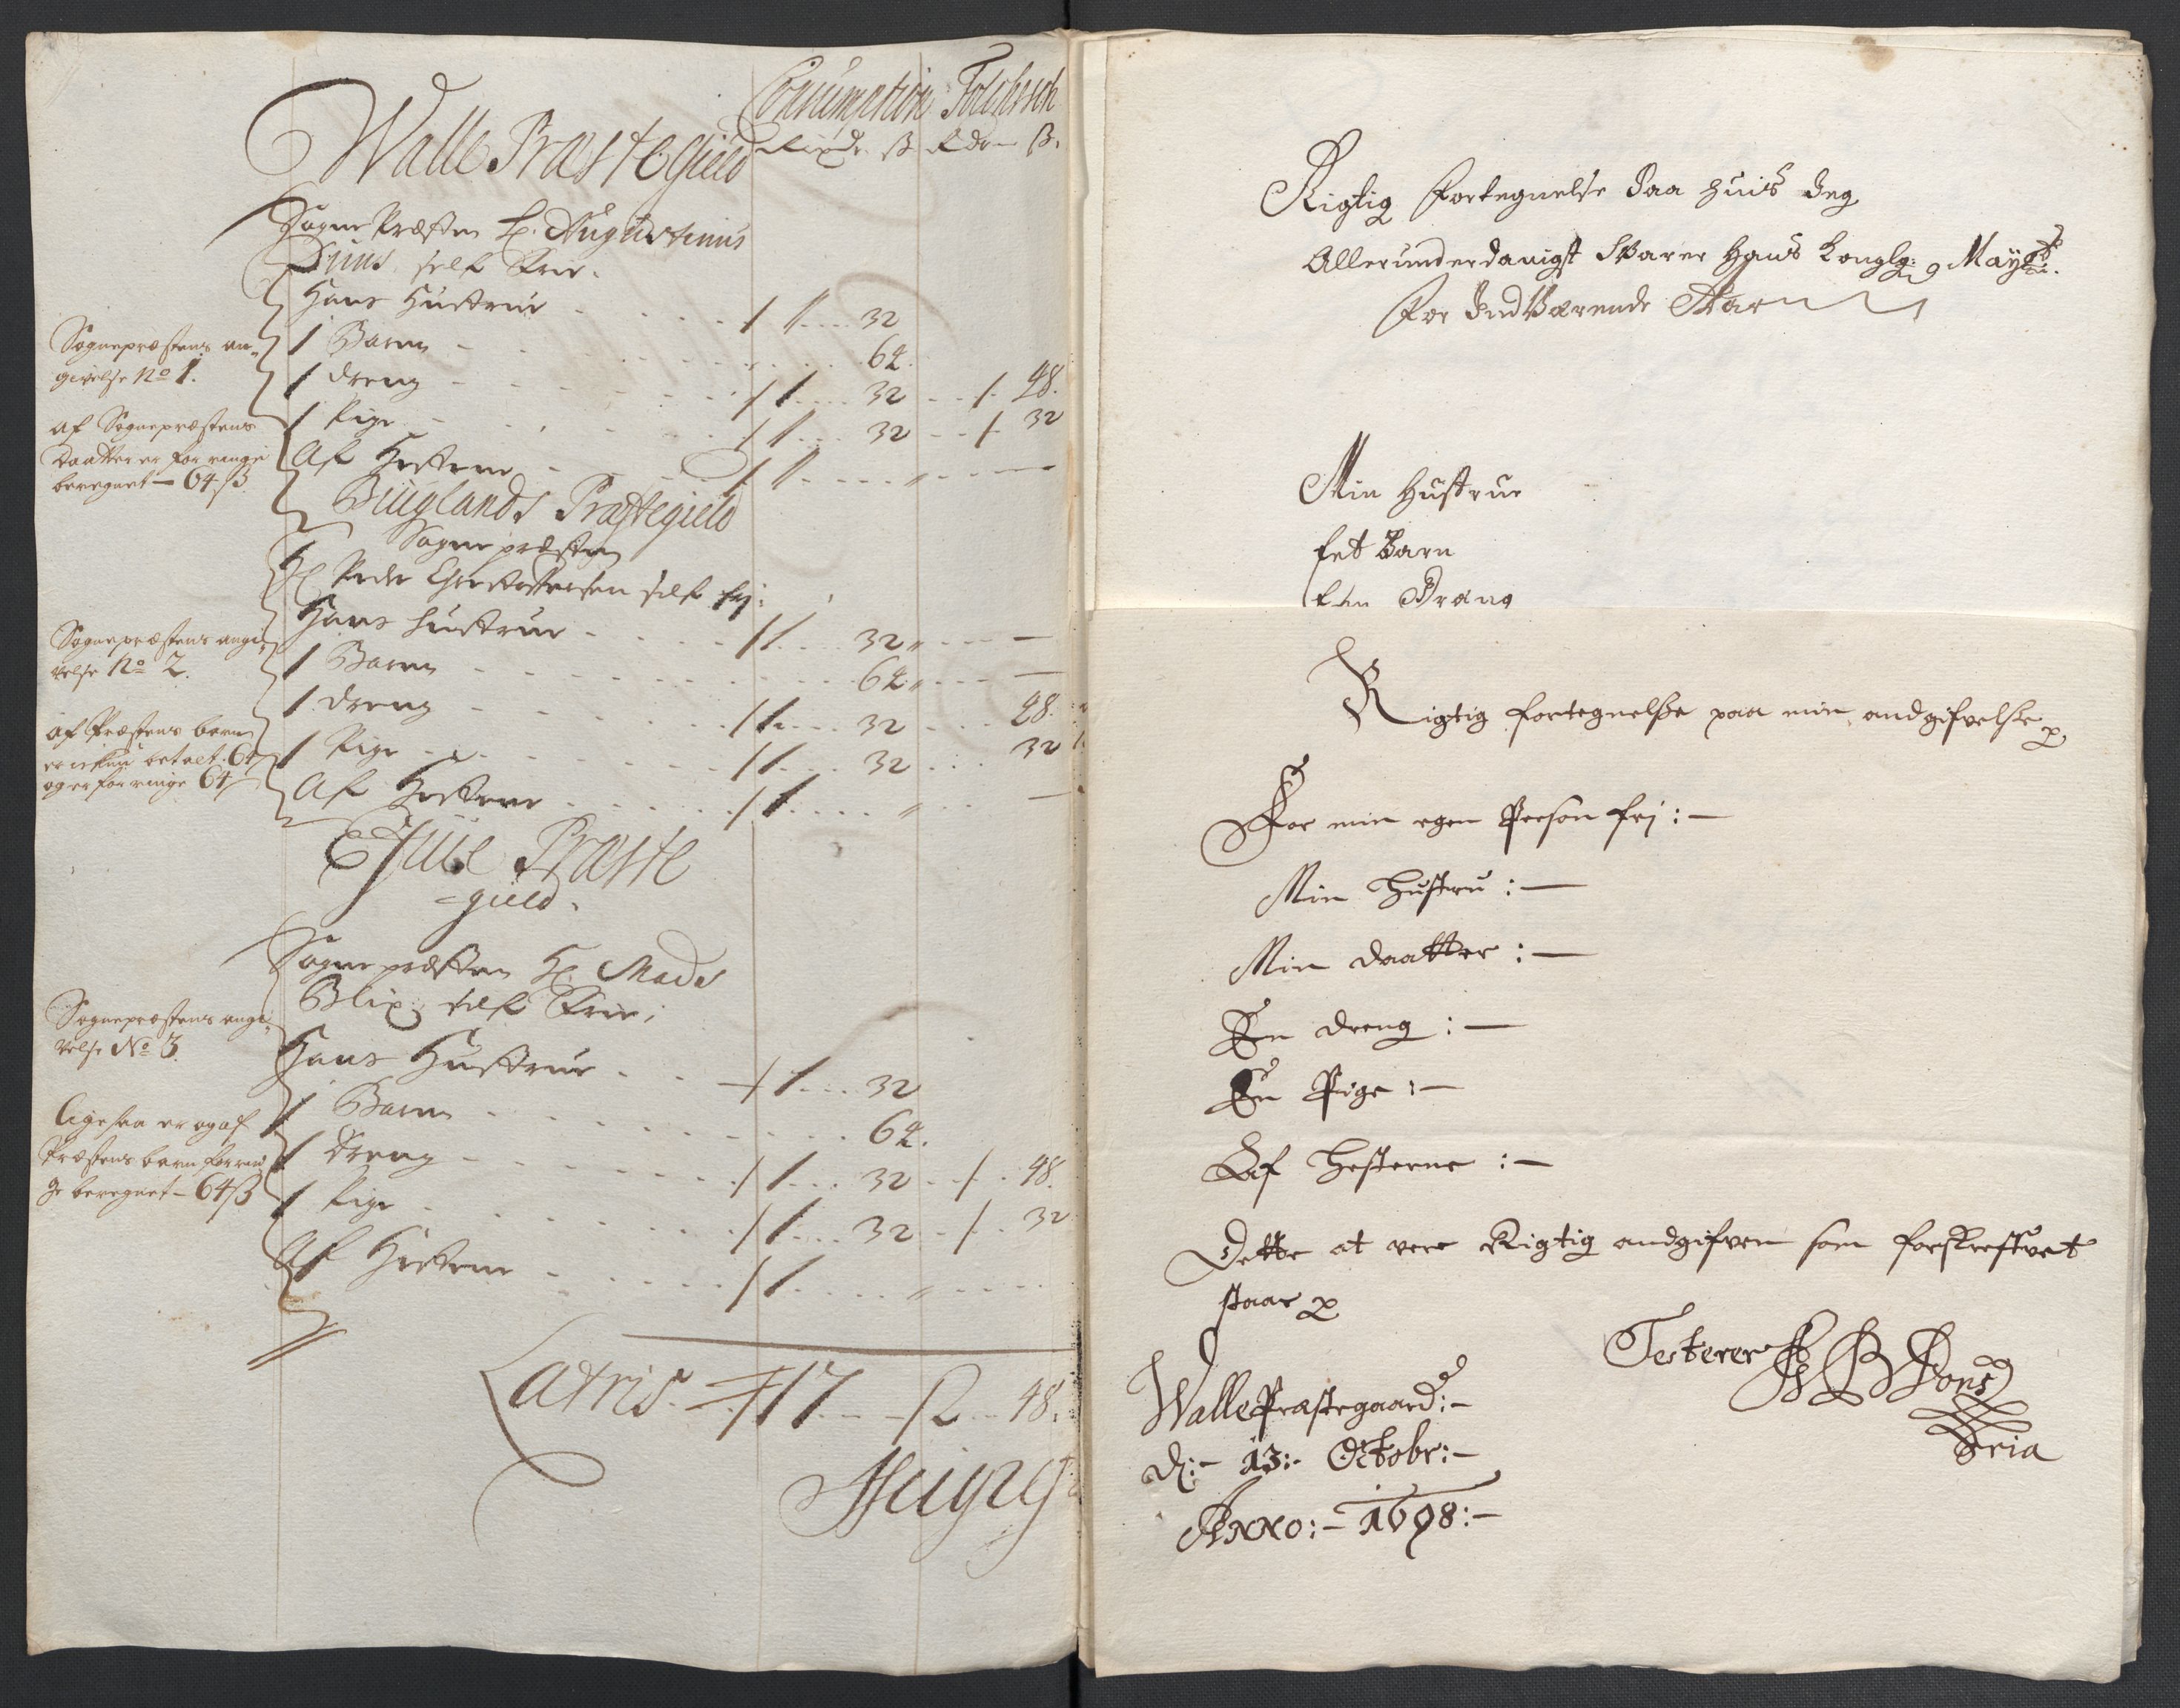 Consumption Folcheskh
Walle Præstegield Rixdr ß Rdr ß.
Sogne Præsten H. Augustinus
self frie.
Hans Hustrue 1 32
1 Barn 64.
1 dreng 1 32 48.
1 Pige 1 32 32
Af Hestene 1
Sognepræstens an-
givelse No 1.
af Sognepræstens
Daatter er for ringe
beregnet — 64 ß.
Buglands Præstegield
Sogne præsten
H. Peder Christophersen self frj:
Hans Hustrue 1 32
1 Barn 64
1 dreng 1 32 48.
1 Pige 1 32 32
Af Hestene 1
Sognepræstens angi-
velse No 2.
af Præstens barn
betalt 64
og er for ringe 64
Præste
-gield.
Sogne præsten H. Mads
Blix self frie,
Hans Hustrue 1 32
1 Barn 64.
1 dreng 1 32 48.
1 Pige 1 32 32
Af Hestene 1
Sognepræstens angi-
velse No 3.
ligesaa er og af
Præstens barn for rin-
ge beregnet — 64 ß
Latris 17 2 48.
Rigtig Fortegnelse Paa huis Jeg
Allerunderdanigst Svarer Hans Konglg: Mayst.
For Indværende Aar
Min Hustrue
Eet Barn
Een Dræng
Rigtig fortegnelse paa min andgifvelse
For min egen Person frj: —
Min Hustru : —
Min daatter : —
En dreng : —
En Pige : —
Af Hesterne : —
Dette at vere Rigtig andgifven som forskrefvet
staar
Testerer
Walle Præstegaard: —
d: - 13: - Octobr: —
Anno: - 1698: —